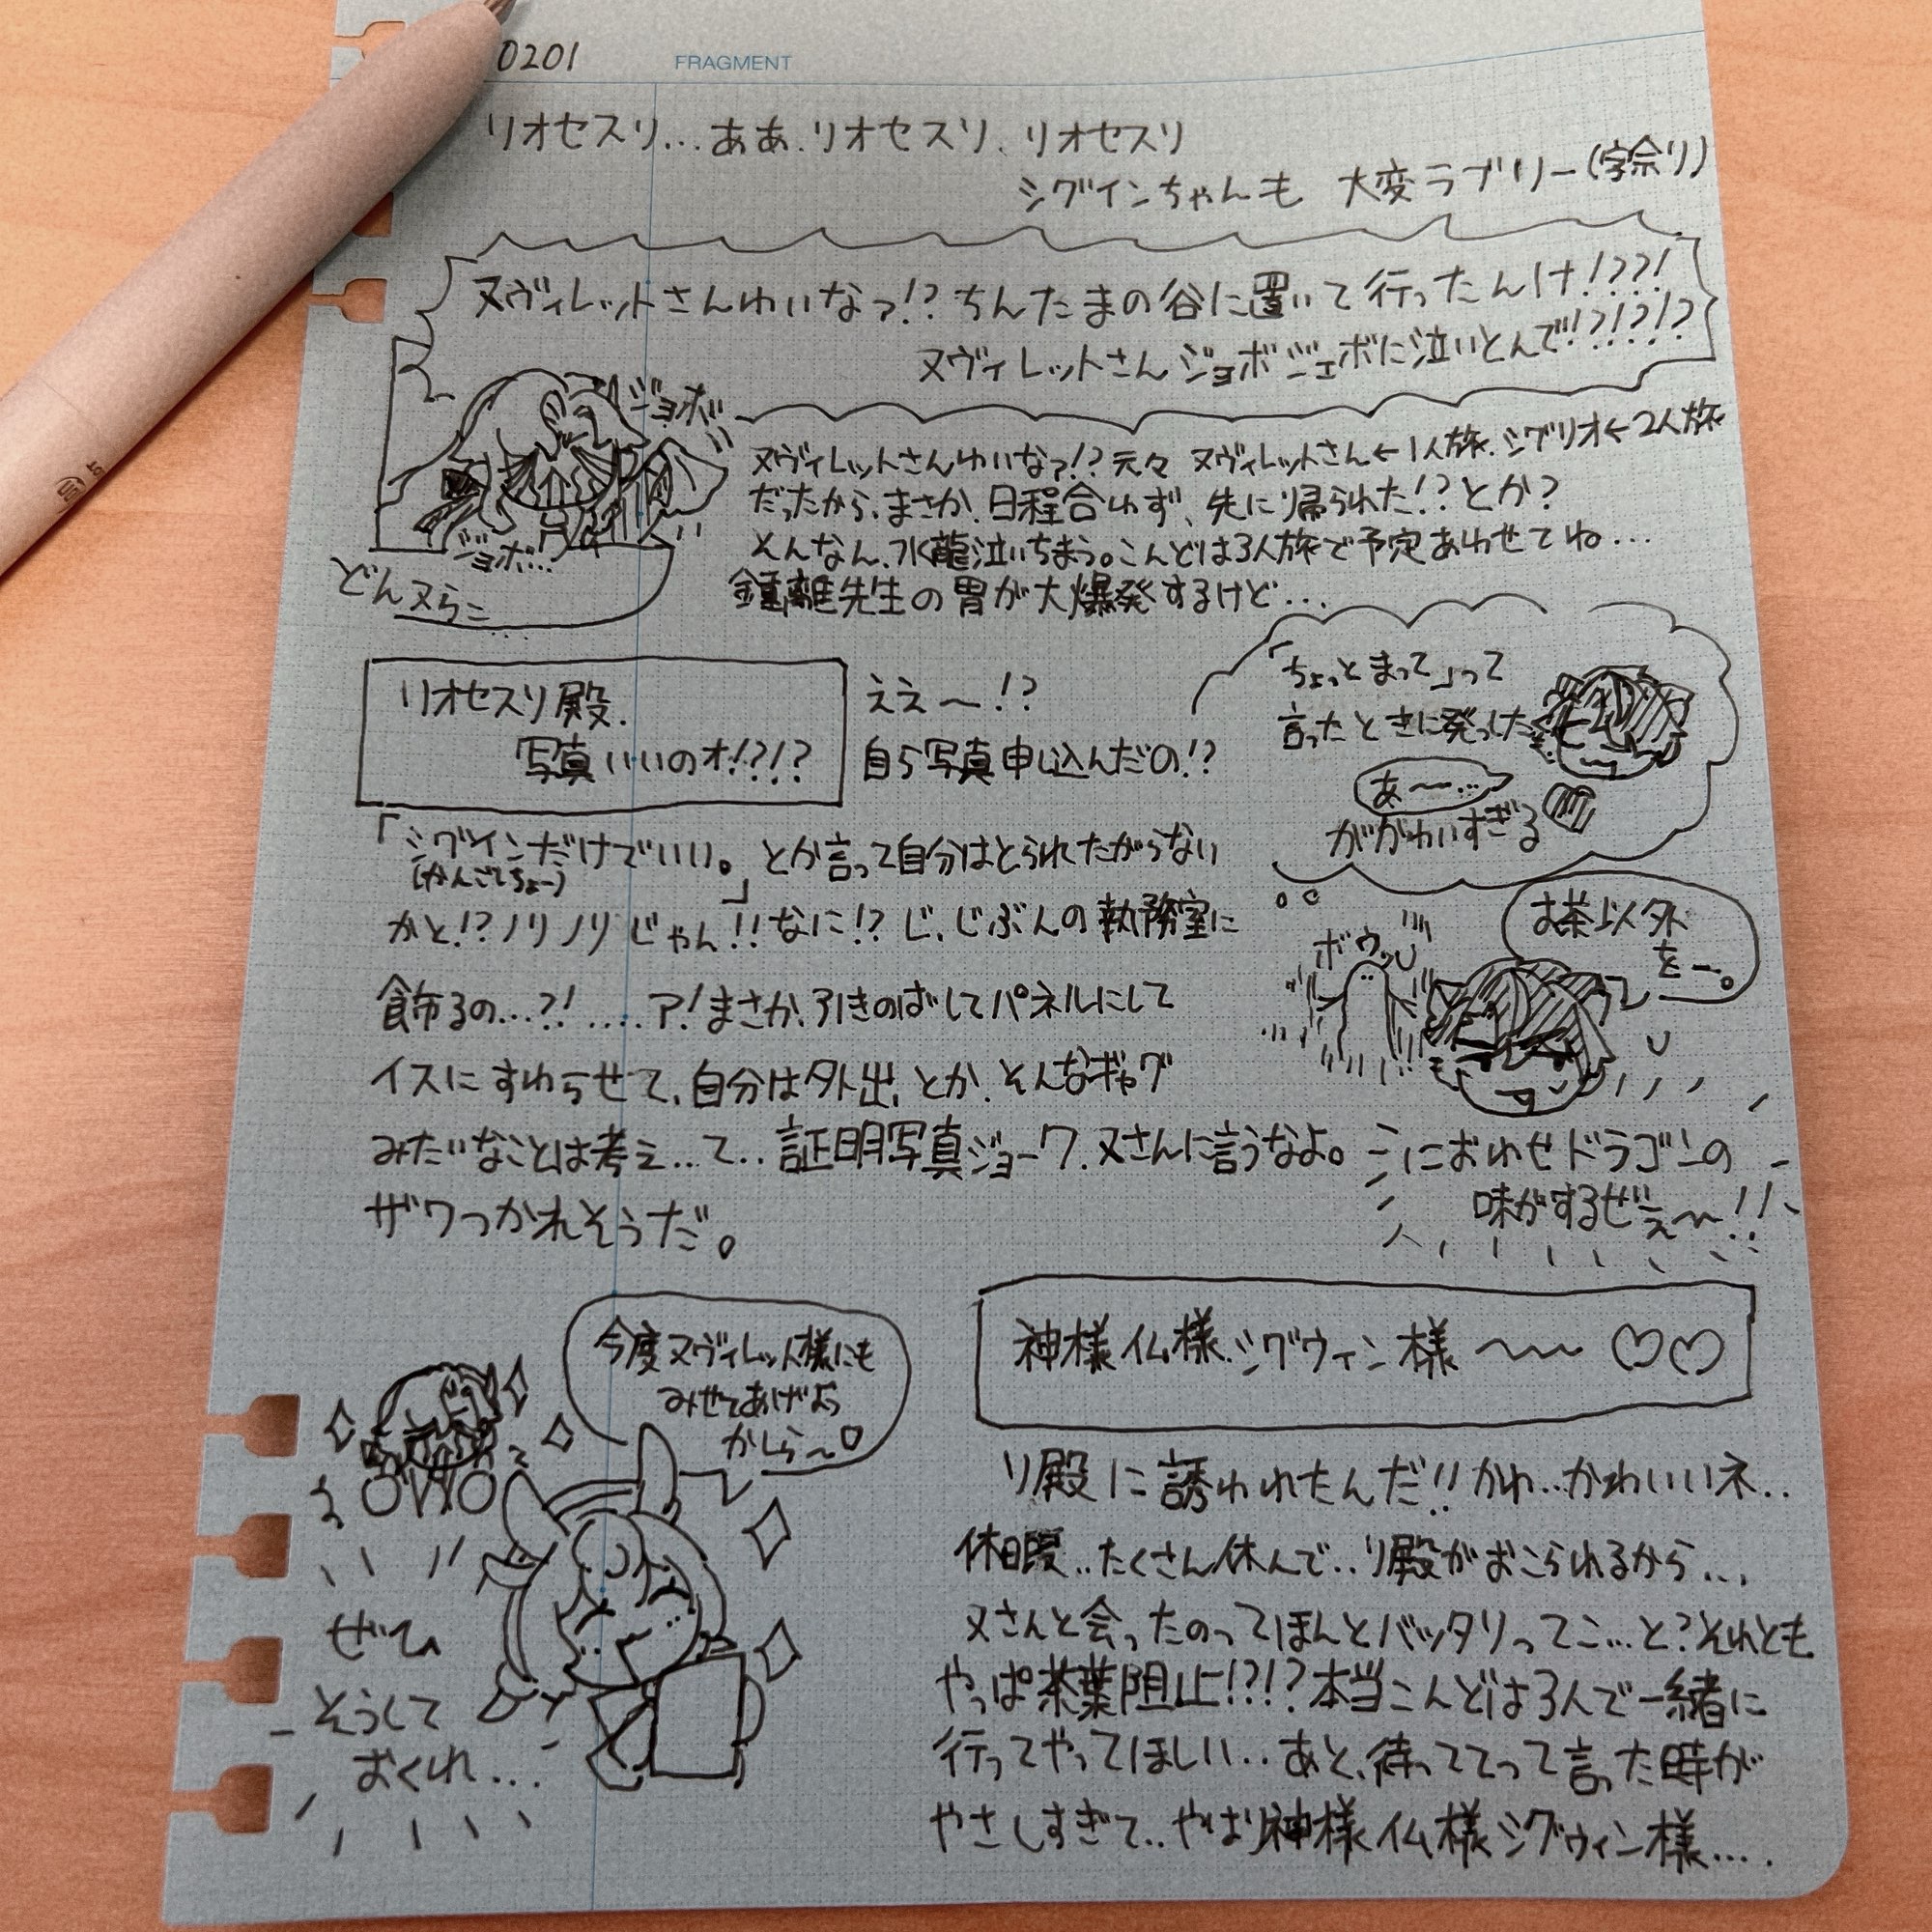 0201
FRAGMENT
リオセスリ...ああ.リオセスリ、リオセスリ
シグインちゃんも 大変ラブリー(字余り)
ヌヴィレットさんわいなァ!?ちんたまの谷に置いて行ったんけ!??!
ヌヴィレットさんジョボジョボに泣いとんで!?!?!?
ジョボ
ジョボ...
どんヌらこ...
ヌヴィレットさんわいなァ!?元々 ヌヴィレットさん←1人旅.シグリオ←2人旅
だったから、まさか、日程合わず、先に帰られた!?とか?
そんなん、水龍泣いちまう。こんどは3人旅で予定あわせてね...
鍾離先生の胃が大爆発するけど...
リオセスリ殿.
写真いいのオ!?!?
ええ〜!?
自ら写真申し込んだの!?
「ちょっとまって」って
言ったときに発した
あ〜...
ががわいすぎる
「シグインだけでいい。」とか言って自分はとられたがらない
(かんごしちょー)
かと!?ノリノリじゃん!!なに!?じ、じぶんの執務室に
飾るの...?!....ア!まさか、引きのばしてパネルにして
イスにすわらせて、自分は外出、とか、そんなギャグ
みたいなことは考え...て..証明写真ジョーク、ヌさんに言うなよ。
ザワつかれそうだ。
お茶以外
を〜。
ボウッ
におわせドラゴンの
味がするぜぇ〜!!
今度ヌヴィレット様にも
みせてあげようかしら〜♡
ぜひ
そうして
おくれ...
神様仏様.シグウィン様〜〜♡♡
リ殿に誘われたんだ!!かわ..かわいいネ..
休暇..たくさん休んで..リ殿がおこられるから...
ヌさんと会ったのってほんとバッタリってこ...と?それとも
やっぱ茶葉阻止!?!?本当こんどは3人で一緒に
行ってやってほしい..あと、待っててって言った時が
やさしすぎて..やはり神様仏様シグウィン様....